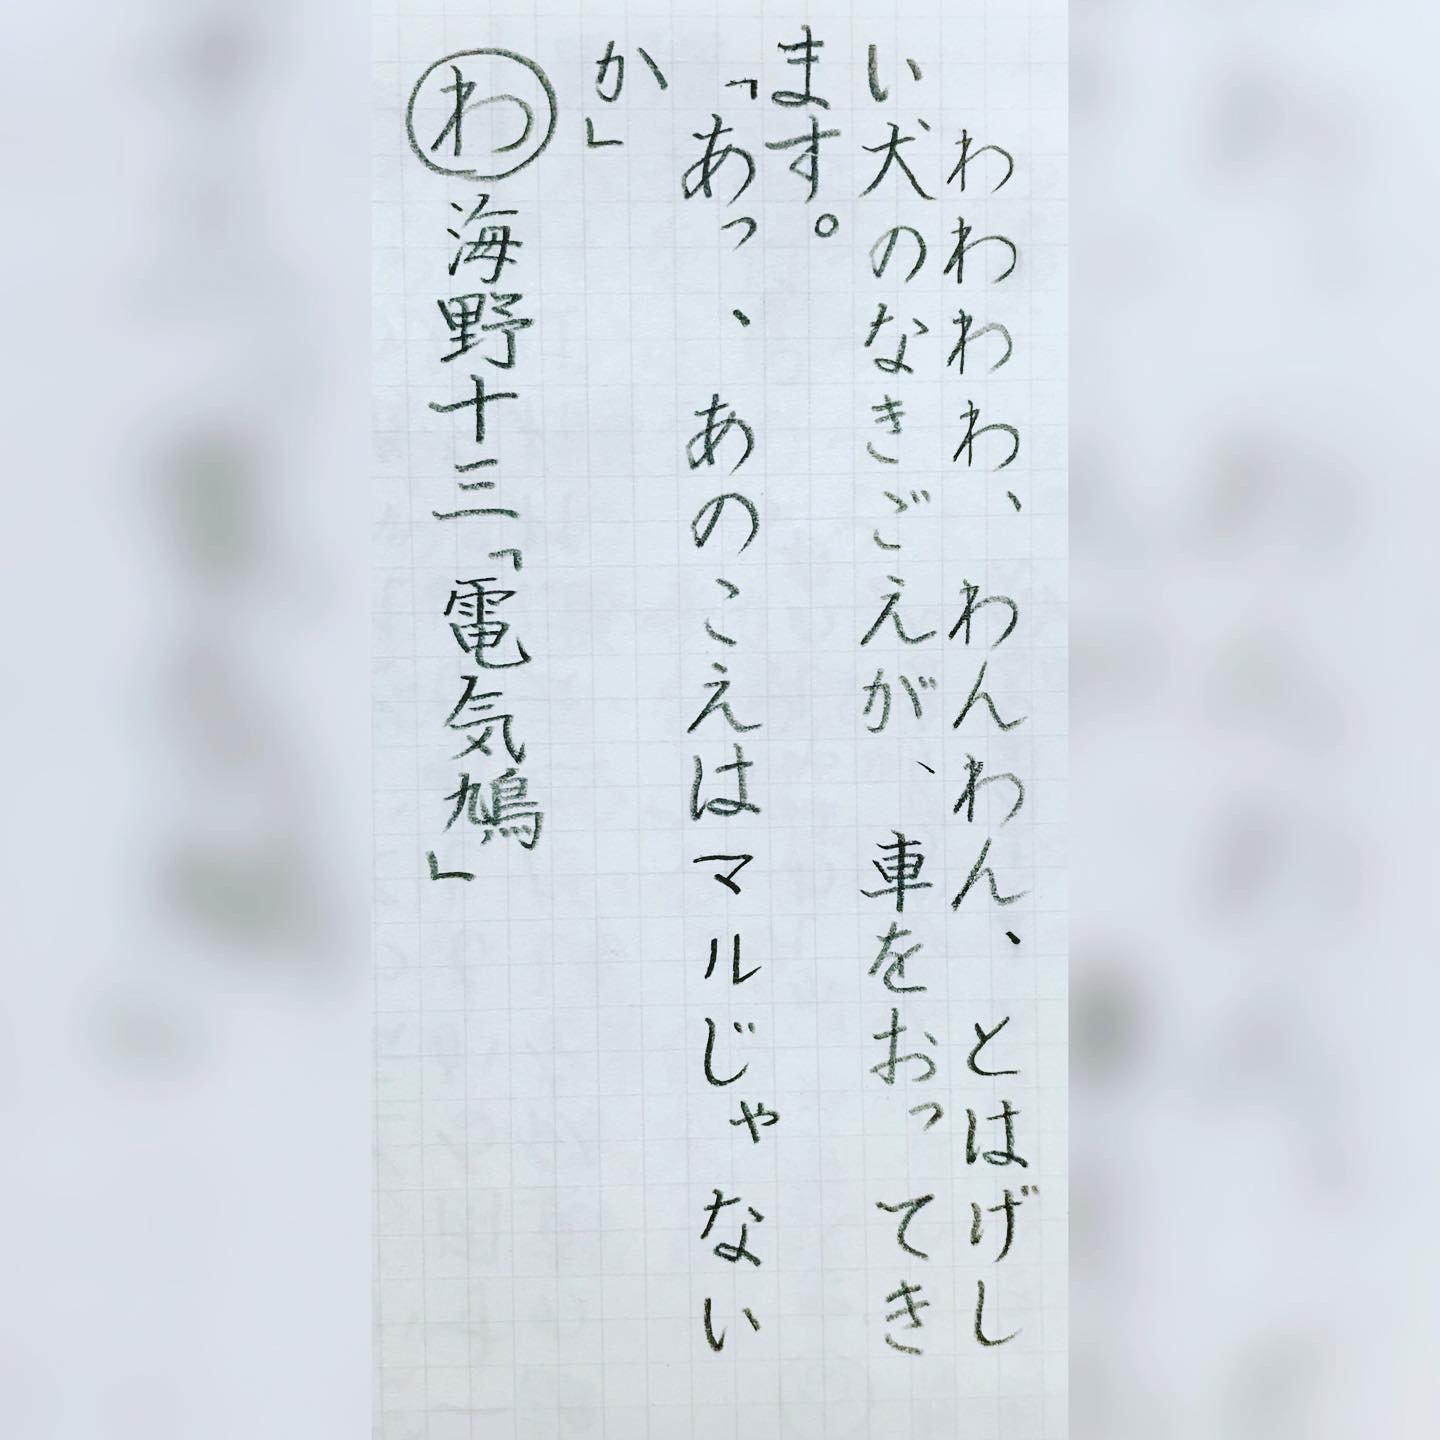 わわわわ、わんわん、とはげし
い犬のなきごえが、車をおってき
ます。
「あっ、あのこえはマルじゃない
か」
わ 海野十三「電気鳩」